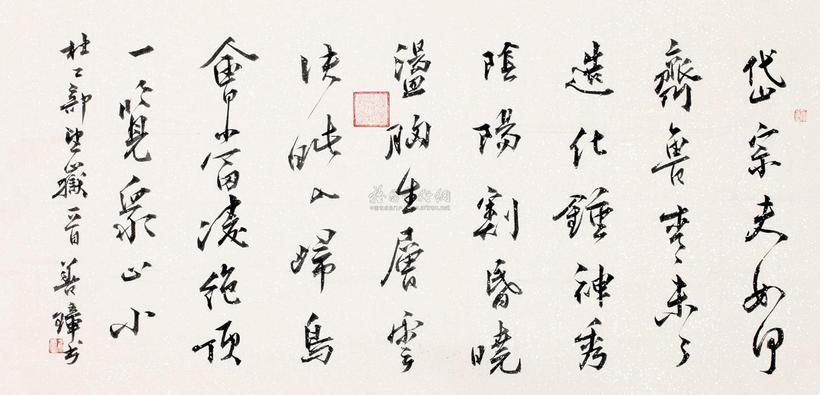 岱宗夫如何
齊魯青未了
造化鍾神秀
陰陽割昏曉
盪胸生層雲
决眦入歸鳥
會當凌絶頂
一覽衆山小
杜工部望嶽一首 善书